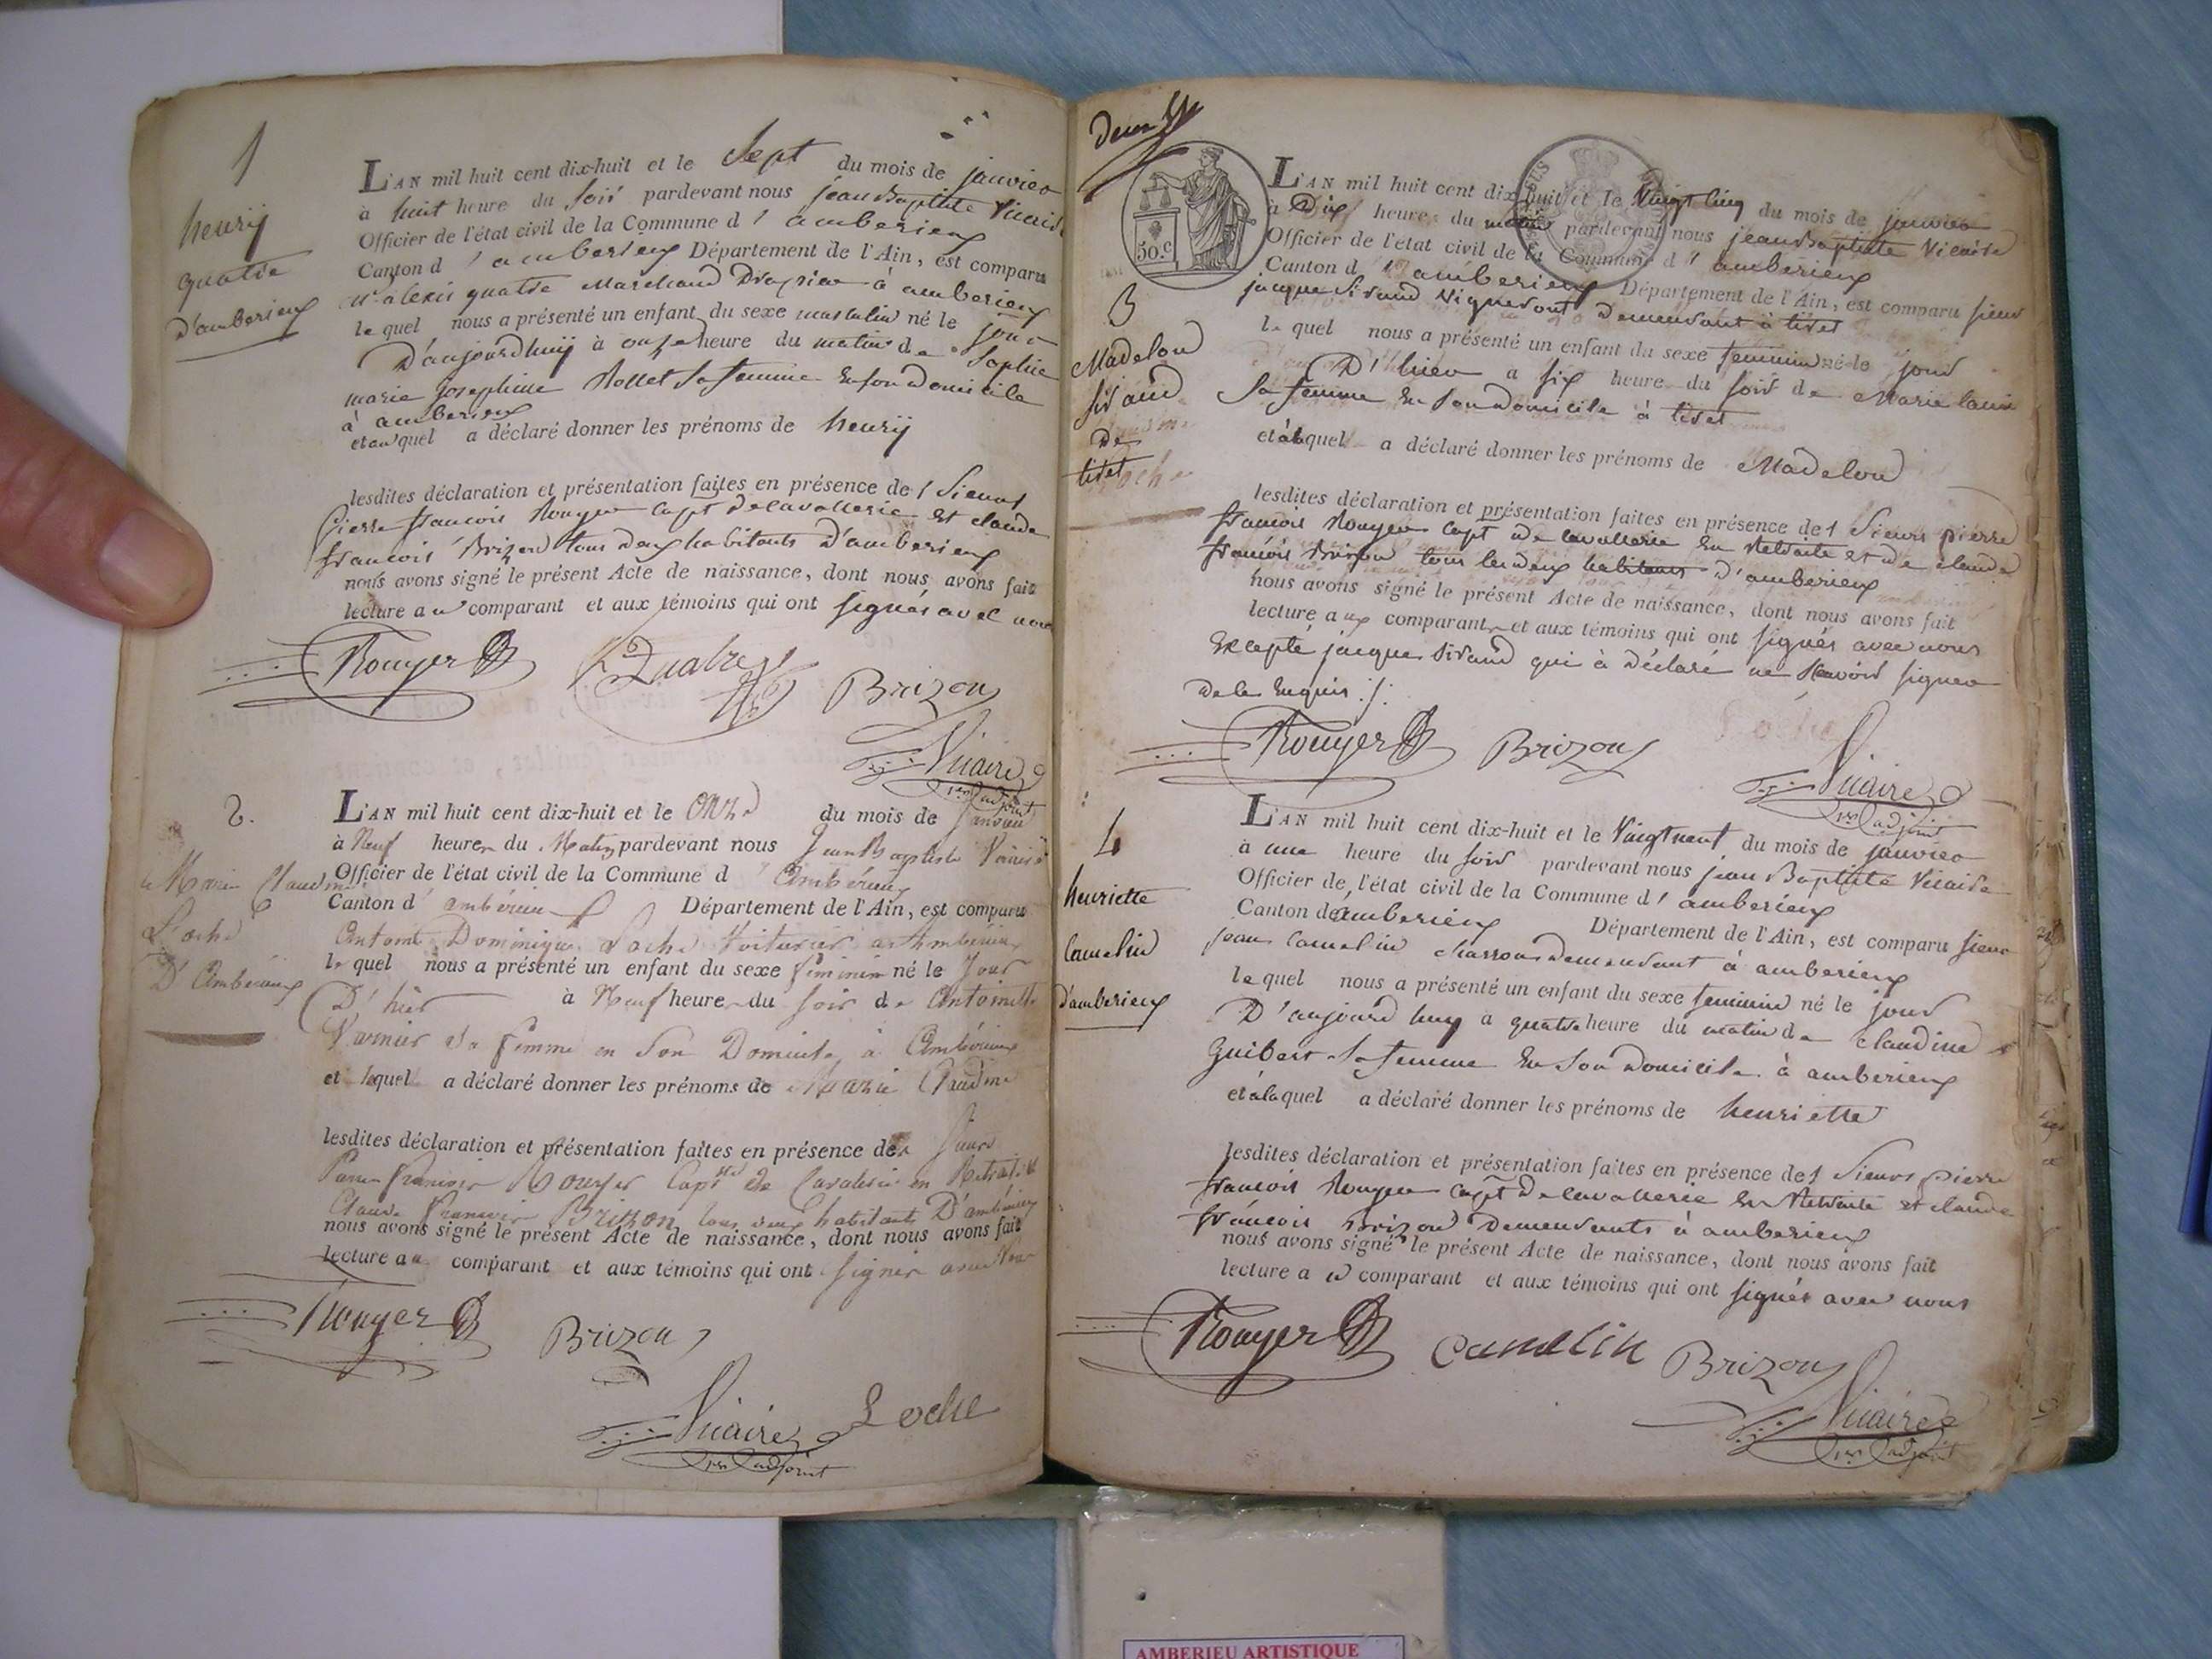 1
henrij
quatre
d'amberieux
L'AN mil huit cent dix-huit et le Sept du mois de janvier
à huit heure du Soir pardevant nous jean Baptiste Vicaire
Officier de l'état civil de la Commune d' amberieux
Canton d' amberieux Département de l'Ain, est comparu
alexis quatre Marchand Drapier à amberieux
le quel nous a présenté un enfant du sexe masculin né le jour
D'aujourdhuij à onze heure du matin de Sophie
marie josephine Rollet Sa femme En son Domicile
à amberieux
et au quel a déclaré donner les prénoms de henrij
lesdites déclaration et présentation faites en présence des Sieurs
Pierre francois Rouyer capt de cavallerie Et claude
francois Brizon tous deux habitants d'amberieux
nous avons signé le présent Acte de naissance, dont nous avons fait
lecture au comparant et aux témoins qui ont signés avec nous
Rouyer Quatre Brizon
Vicaire
1er adjoint
2.
Marie Claudine
Loche
D'Ambérieux
L'AN mil huit cent dix-huit et le Onze du mois de Janvier
à Neuf heures du Matin pardevant nous Jean Baptiste Vicaire
Officier de l'état civil de la Commune d' Ambérieux
Canton d' ambérieux Département de l'Ain, est comparu
Antoine Dominique Loche Voiturier à Ambérieux
le quel nous a présenté un enfant du sexe féminin né le Jour
D'hier à Neuf heures du soir de Antoinette
Varnier Sa femme en Son Domicile à Ambérieux
et laquel a déclaré donner les prénoms de Marie Claudine
lesdites déclaration et présentation faites en présence des Sieurs
Pierre francois Rouyer Capt de Cavalerie en Retraite
Claude francois Brizon tous deux habitants D'ambérieux
nous avons signé le présent Acte de naissance, dont nous avons fait
lecture au comparant et aux témoins qui ont signés avec Nous
Rouyer Brizon
Vicaire Loche
1er adjoint
Deux
50.c
3
Madelon
Siraud
De
tiret
L'AN mil huit cent dix-huit et le Vingt Cinq du mois de janvier
à Dix heures du matin pardevant nous jean Baptiste Vicaire
Officier de l'état civil de la Commune d' amberieux
Canton d' amberieux Département de l'Ain, est comparu sieur
jacque Siraud Vigneront Demeurant à tiret
le quel nous a présenté un enfant du sexe feminin né le jour
D'hier a six heure du soir de Marie
Sa femme En Son Domicile à tiret
et à laquel a déclaré donner les prénoms de Madelon
lesdites déclaration et présentation faites en présence des Sieurs pierre
francois Rouyer capt de cavallerie En Retraite et de claude
francois Brizon tous les deux habitants d'amberieux
nous avons signé le présent Acte de naissance, dont nous avons fait
lecture aux comparants et aux témoins qui ont signés avec nous
Excepté jacque Siraud qui à Déclaré ne Scavoir signer
de ce Enquis ./.
Rouyer Brizon
Vicaire
1er adjoint
4
henriette
Camelin
d'amberieux
L'AN mil huit cent dix-huit et le Vingt neuf du mois de janvier
à une heure du soir pardevant nous jean Baptiste Vicaire
Officier de l'état civil de la Commune d' amberieux
Canton d'amberieux Département de l'Ain, est comparu sieur
jean Camelin charron Demeurant à amberieux
le quel nous a présenté un enfant du sexe feminin né le jour
D'aujourd huy à quatre heure du matin de claudine
Guibert Sa femme En Son Domicile à amberieux
et à laquel a déclaré donner les prénoms de henriette
lesdites déclaration et présentation faites en présence des Sieurs pierre
francois Rouyer capt de cavallerie En Retraite et claude
francois Brizon Demeurants à amberieux
nous avons signé le présent Acte de naissance, dont nous avons fait
lecture au comparant et aux témoins qui ont signés avec nous
Rouyer Camelin Brizon
Vicaire
1er adjoint
AMBERIEU ARTISTIQUE